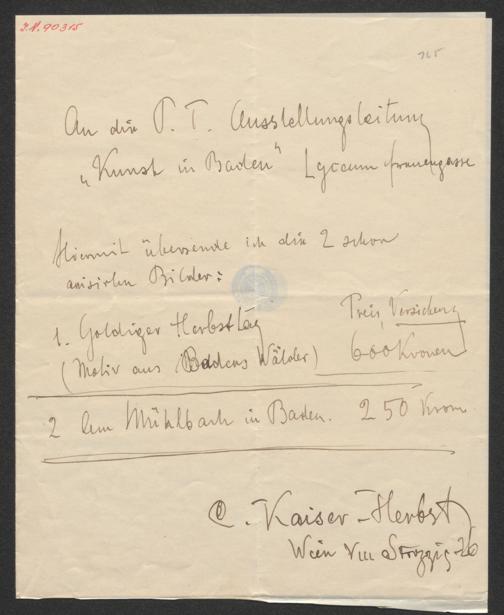 J.N. 90315
An die P. T. Ausstellungsleitung
„Kunst in Baden" Lyceum Frauengasse
Hiermit übersende ich die 2 schon
avisirten Bilder:
Preis, Versicherung
1. Goldiger Herbsttag
(Motiv aus Badens Wälder) 600 Kronen
2 Am Mühlbach in Baden. 250 Kronen
C. Kaiser-Herbst
Wien VIII Strozzig 26